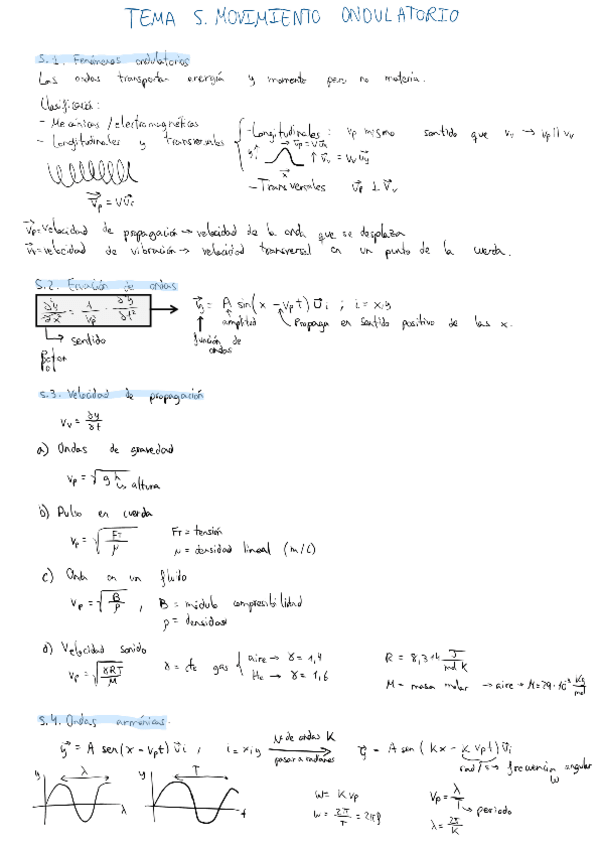 TEMA 5. MOVIMIENTO ONDULATORIO
5.1. Fenómenos ondulatorios
Las ondas transportan energía y momento pero no materia.
Clasificación:
- Mecánicas / electromagnéticas
- Longitudinales y transversales
- Longitudinales: vp mismo sentido que vv → vp || vv
- Transversales vp ⊥ vv
vp = velocidad de propagación → velocidad de la onda que se desplaza
vv = velocidad de vibración → velocidad transversal en un punto de la cuerda.
5.2. Ecuación de ondas
y = A sin(x - vpt) ui ; i = x,y
amplitud
Propaga en sentido positivo de las x.
función de ondas
sentido
5.3. Velocidad de propagación
vv = ∂y/∂t
a) Ondas de gravedad
vp = √g h
altura
b) Pulso en cuerda
vp = √FT/μ
FT = tensión
μ = densidad lineal (m/L)
c) Onda en un fluido
vp = √B/ρ , B = módulo compresibilidad
ρ = densidad
d) Velocidad sonido
vp = √γRT/M
γ = cte gas
aire → γ = 1,4
He → γ = 1,6
R = 8,314 J/mol K
M = masa molar → aire → M = 29·10⁻³ Kg/mol
5.4. Ondas armónicas.
y = A sen(x - vpt) ui , i = x,y
Nº de ondas K
pasar a radianes
y = A sen(kx - k vpt) ui
rad/s → frecuencia angular
ω
y λ
λ
y T
t
ω = K vp
ω = 2π/T = 2πf
vp = λ/T → periodo
λ = 2π/K